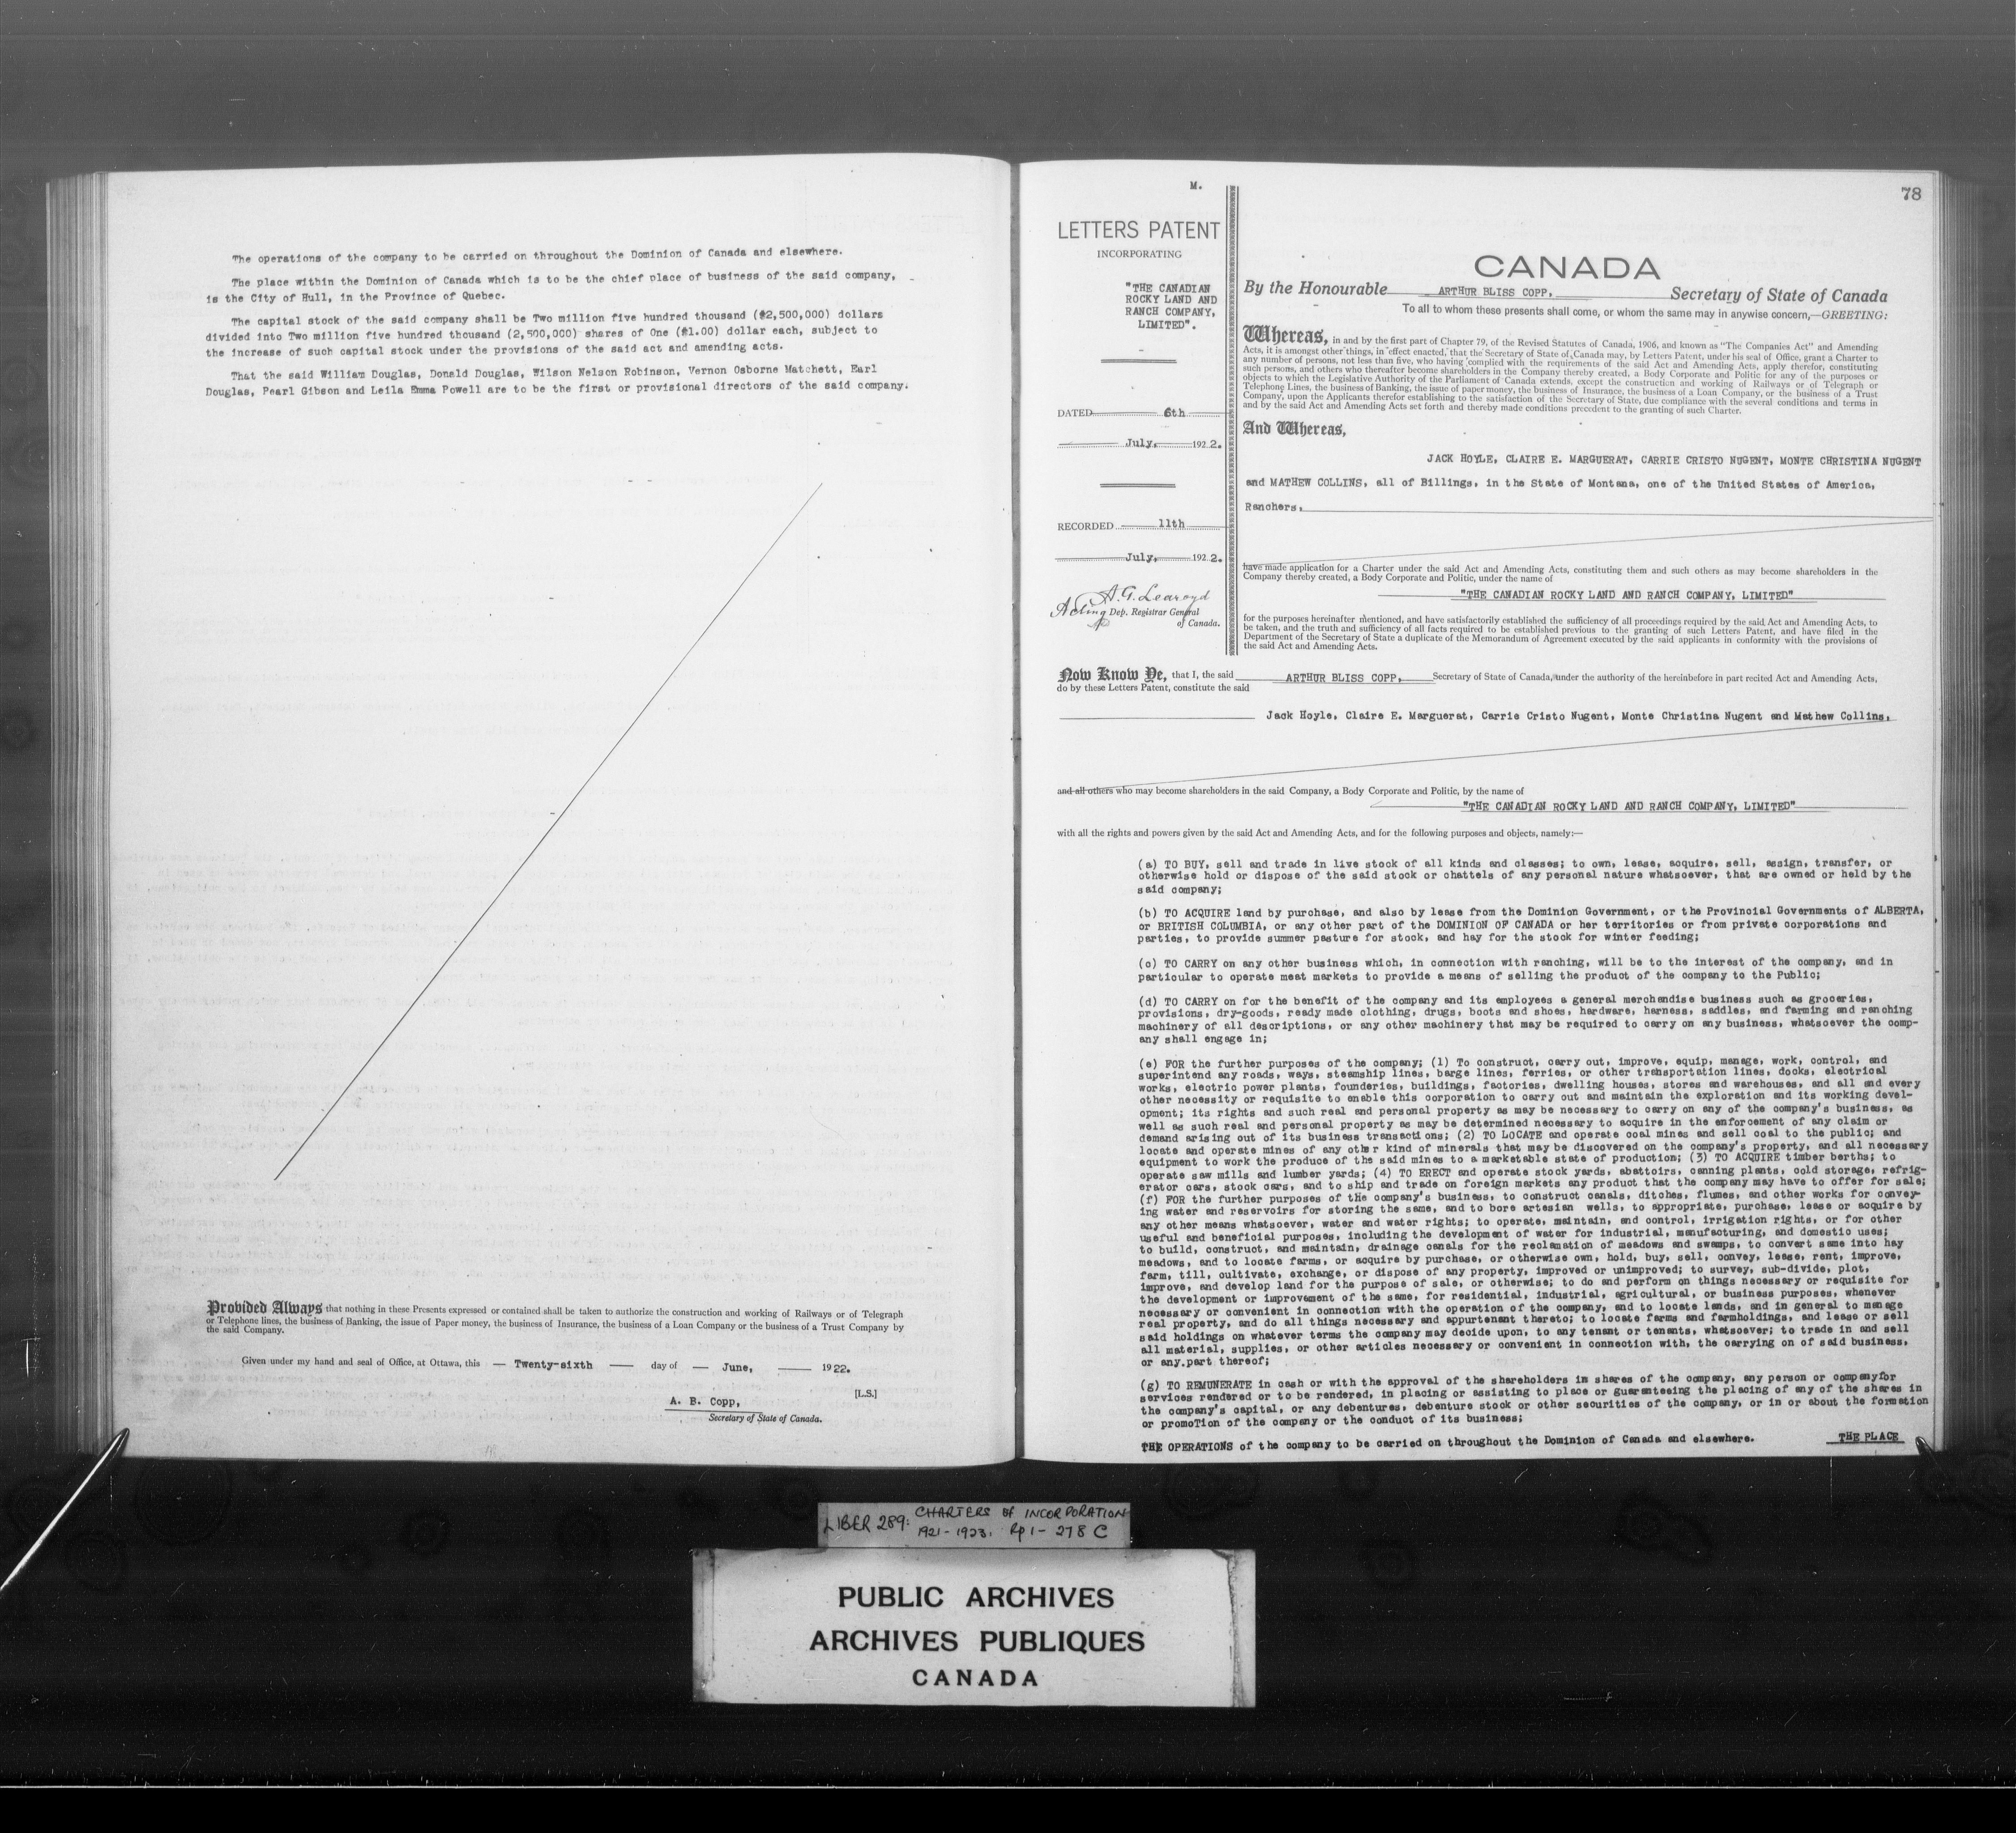 The operations of the company to be carried on throughout the Dominion of Canada and elsewhere.
The place within the Dominion of Canada which is to be the chief place of business of the said company,
is the City of Hull, in the Province of Quebec.
The capital stock of the said company shall be Two million five hundred thousand ($2,500,000) dollars
divided into Two million five hundred thousand (2,500,000) shares of One ($1.00) dollar each, subject to
the increase of such capital stock under the provisions of the said act and amending acts.
That the said William Douglas, Donald Douglas, Wilson Nelson Robinson, Vernon Osborne Matchett, Earl
Douglas, Pearl Gibson and Leila Emma Powell are to be the first or provisional directors of the said company.
Provided Always that nothing in these Presents expressed or contained shall be taken to authorize the construction and working of Railways or of Telegraph
or Telephone lines, the business of Banking, the issue of Paper money, the business of Insurance, the business of a Loan Company or the business of a Trust Company by
the said Company.
Given under my hand and seal of Office, at Ottawa, this — Twenty-sixth — day of — June, — 1922.
[L.S.]
A. B. Copp,
Secretary of State of Canada.
M.
78
LETTERS PATENT
INCORPORATING
"THE CANADIAN
ROCKY LAND AND
RANCH COMPANY,
LIMITED".
DATED 6th
July, 1922.
RECORDED 11th
July, 1922.
A. G. Learoyd
Acting Dep. Registrar General
of Canada.
CANADA
By the Honourable ARTHUR BLISS COPP, Secretary of State of Canada
To all to whom these presents shall come, or whom the same may in anywise concern,—GREETING:
Whereas, in and by the first part of Chapter 79, of the Revised Statutes of Canada, 1906, and known as "The Companies Act" and Amending
Acts, it is amongst other things, in effect enacted, that the Secretary of State of Canada may, by Letters Patent, under his seal of Office, grant a Charter to
any number of persons, not less than five, who having complied with the requirements of the said Act and Amending Acts, apply therefor, constituting
such persons, and others who thereafter become shareholders in the Company thereby created, a Body Corporate and Politic for any of the purposes or
objects to which the Legislative Authority of the Parliament of Canada extends, except the construction and working of Railways or of Telegraph or
Telephone Lines, the business of Banking, the issue of paper money, the business of Insurance, the business of a Loan Company, or the business of a Trust
Company, upon the Applicants therefor establishing to the satisfaction of the Secretary of State, due compliance with the several conditions and terms in
and by the said Act and Amending Acts set forth and thereby made conditions precedent to the granting of such Charter.
And Whereas,
JACK HOYLE, CLAIRE E. MARGUERAT, CARRIE CRISTO NUGENT, MONTE CHRISTINA NUGENT
and MATHEW COLLINS, all of Billings, in the State of Montana, one of the United States of America,
Ranchers,
have made application for a Charter under the said Act and Amending Acts, constituting them and such others as may become shareholders in the
Company thereby created, a Body Corporate and Politic, under the name of
"THE CANADIAN ROCKY LAND AND RANCH COMPANY, LIMITED"
for the purposes hereinafter mentioned, and have satisfactorily established the sufficiency of all proceedings required by the said Act and Amending Acts, to
be taken, and the truth and sufficiency of all facts required to be established previous to the granting of such Letters Patent, and have filed in the
Department of the Secretary of State a duplicate of the Memorandum of Agreement executed by the said applicants in conformity with the provisions of
the said Act and Amending Acts.
Now Know Ye, that I, the said ARTHUR BLISS COPP, Secretary of State of Canada, under the authority of the hereinbefore in part recited Act and Amending Acts,
do by these Letters Patent, constitute the said
Jack Hoyle, Claire E. Marguerat, Carrie Cristo Nugent, Monte Christina Nugent and Mathew Collins,
and all others who may become shareholders in the said Company, a Body Corporate and Politic, by the name of
"THE CANADIAN ROCKY LAND AND RANCH COMPANY, LIMITED"
with all the rights and powers given by the said Act and Amending Acts, and for the following purposes and objects, namely:—
(a) TO BUY, sell and trade in live stock of all kinds and classes; to own, lease, acquire, sell, assign, transfer, or
otherwise hold or dispose of the said stock or chattels of any personal nature whatsoever, that are owned or held by the
said company;
(b) TO ACQUIRE land by purchase, and also by lease from the Dominion Government, or the Provincial Governments of ALBERTA,
or BRITISH COLUMBIA, or any other part of the DOMINION OF CANADA or her territories or from private corporations and
parties, to provide summer pasture for stock, and hay for the stock for winter feeding;
(c) TO CARRY on any other business which, in connection with ranching, will be to the interest of the company, and in
particular to operate meat markets to provide a means of selling the product of the company to the Public;
(d) TO CARRY on for the benefit of the company and its employees a general merchandise business such as groceries,
provisions, dry-goods, ready made clothing, drugs, boots and shoes, hardware, harness, saddles, and farming and ranching
machinery of all descriptions, or any other machinery that may be required to carry on any business, whatsoever the comp-
any shall engage in;
(e) FOR the further purposes of the company; (1) To construct, carry out, improve, equip, manage, work, control, and
superintend any roads, ways, steamship lines, barge lines, ferries, or other transportation lines, docks, electrical
works, electric power plants, founderies, buildings, factories, dwelling houses, stores and warehouses, and all and every
other necessity or requisite to enable this corporation to carry out and maintain the exploration and its working devel-
opment; its rights and such real and personal property as may be necessary to carry on any of the company's business, as
well as such real and personal property as may be determined necessary to acquire in the enforcement of any claim or
demand arising out of its business transactions; (2) TO LOCATE and operate coal mines and sell coal to the public; and
locate and operate mines of any other kind of minerals that may be discovered on the company's property, and all necessary
equipment to work the produce of the said mines to a marketable state of production; (3) TO ACQUIRE timber berths; to
operate saw mills and lumber yards; (4) TO ERECT and operate stock yards, abattoirs, canning plants, cold storage, refrig-
erator cars, stock cars, and to ship and trade on foreign markets any product that the company may have to offer for sale;
(f) FOR the further purposes of the company's business, to construct canals, ditches, flumes, and other works for convey-
ing water and reservoirs for storing the same, and to bore artesian wells, to appropriate, purchase, lease or acquire by
any other means whatsoever, water and water rights; to operate, maintain, and control, irrigation rights, or for other
useful and beneficial purposes, including the development of water for industrial, manufacturing, and domestic uses;
to build, construct, and maintain, drainage canals for the reclamation of meadows and swamps, to convert same into hay
meadows, and to locate farms, or acquire by purchase, or otherwise own, hold, buy, sell, convey, lease, rent, improve,
farm, till, cultivate, exchange, or dispose of any property, improved or unimproved; to survey, sub-divide, plot,
improve, and develop land for the purpose of sale, or otherwise; to do and perform on things necessary or requisite for
the development or improvement of the same, for residential, industrial, agricultural, or business purposes, whenever
necessary or convenient in connection with the operation of the company, and to locate lands, and in general to manage
real property, and do all things necessary and appurtenant thereto; to locate farms and farmholdings, and lease or sell
said holdings on whatever terms the company may decide upon, to any tenant or tenants, whatsoever; to trade in and sell
all material, supplies, or other articles necessary or convenient in connection with, the carrying on of said business,
or any part thereof;
(g) TO REMUNERATE in cash or with the approval of the shareholders in shares of the company, any person or companyfor
services rendered or to be rendered, in placing or assisting to place or guaranteeing the placing of any of the shares in
the company's capital, or any debentures, debenture stock or other securities of the company, or in or about the formation
or promoTion of the company or the conduct of its business;
THE OPERATIONS of the company to be carried on throughout the Dominion of Canada and elsewhere. THE PLACE
LIBER 289: CHARTERS OF INCORPORATION
1921-1923. Pp 1- 278 C
PUBLIC ARCHIVES
ARCHIVES PUBLIQUES
CANADA